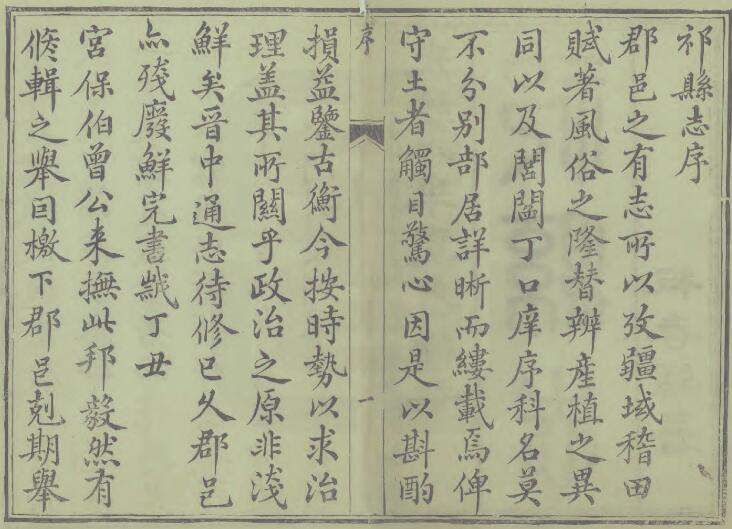 祁縣志序
郡邑之有志所以攷疆域稽田
賦著風俗之隆替辨產植之異
同以及閭閻丁口庠序科名莫
不分别部居詳晰而縷載焉俾
守土者觸目驚心因是以斟酌
序
一
損益鑒古衡今按時勢以求治
理盖其所關乎政治之原非淺
鮮矣晉中通志待修已久郡邑
亦殘廢鮮完書歲丁丑
宮保伯曾公来撫此邦毅然有
脩輯之舉囙檄下郡邑剋期舉